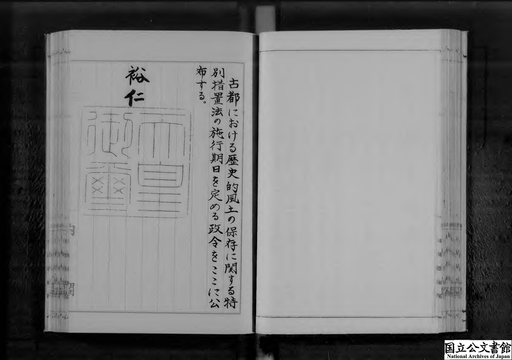 古都における歴史的風土の保存に関する特
別措置法の施行期日を定める政令をここに公
布する。
裕仁
天皇
御璽
国立公文書館
National Archives of Japan